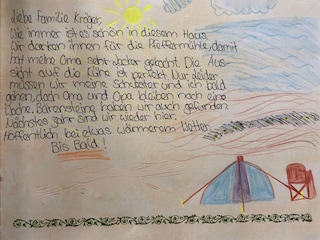 Liebe Familie Kröger,
Wie immer ist es schön in diesem Haus.
Wir danken ihnen für die Pfeffermühle, damit
hat meine Oma sehr lecker gekocht. Die Aus-
sicht auf die Küste ist perfekt. Nur leider
müssen wir meine Schwester und ich bald
gehen, doch Oma und Opa bleiben noch eine
Woche. Bärensteine haben wir auch gefunden.
Nächstes Jahr sind wir wieder hier.
Hoffentlich bei etwas wärmerem Wetter.
Bis Bald!